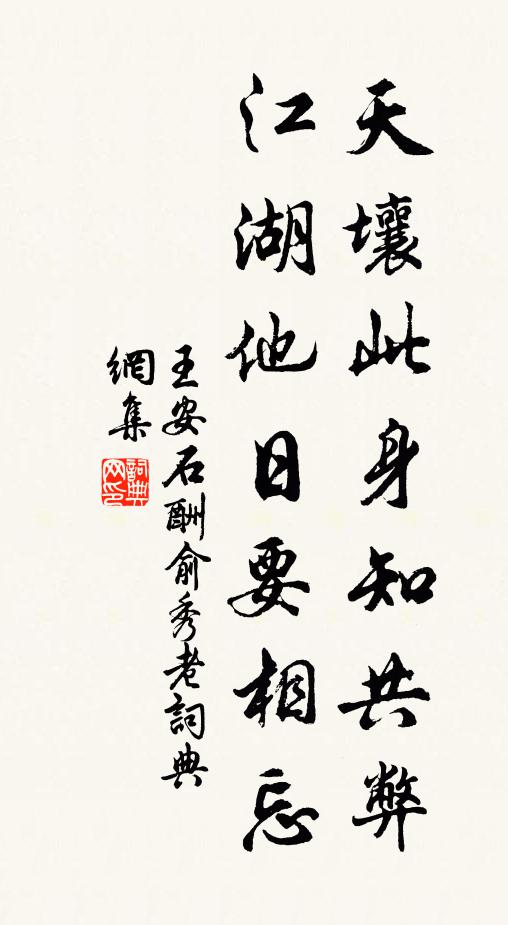 天壤此身知共弊
江湖他日要相忘
王安石酬俞秀老詞典
網集
詞典
网印